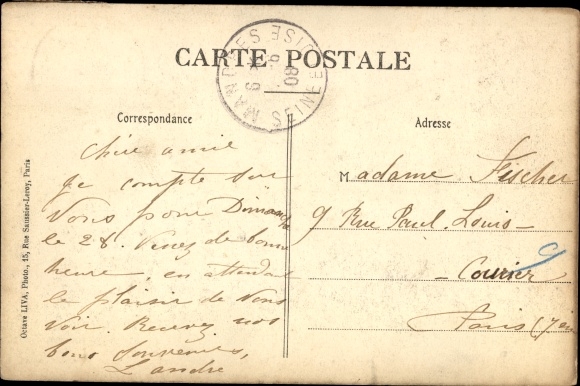 CARTE POSTALE
MANDRES SEINE ET OISE
Correspondance
Adresse
Chère amie
Je compte sur
vous pour Dimanche
le 28. Venez de bonne
heure, en attendant
le plaisir de vous
voir. Recevez nos
bons souvenirs,
Landré
Madame Fischer
9 Rue Paul-Louis-
- Courier
Paris (7em
Octave LIVA, Photo., 15, Rue Saussier-Leroy, Paris